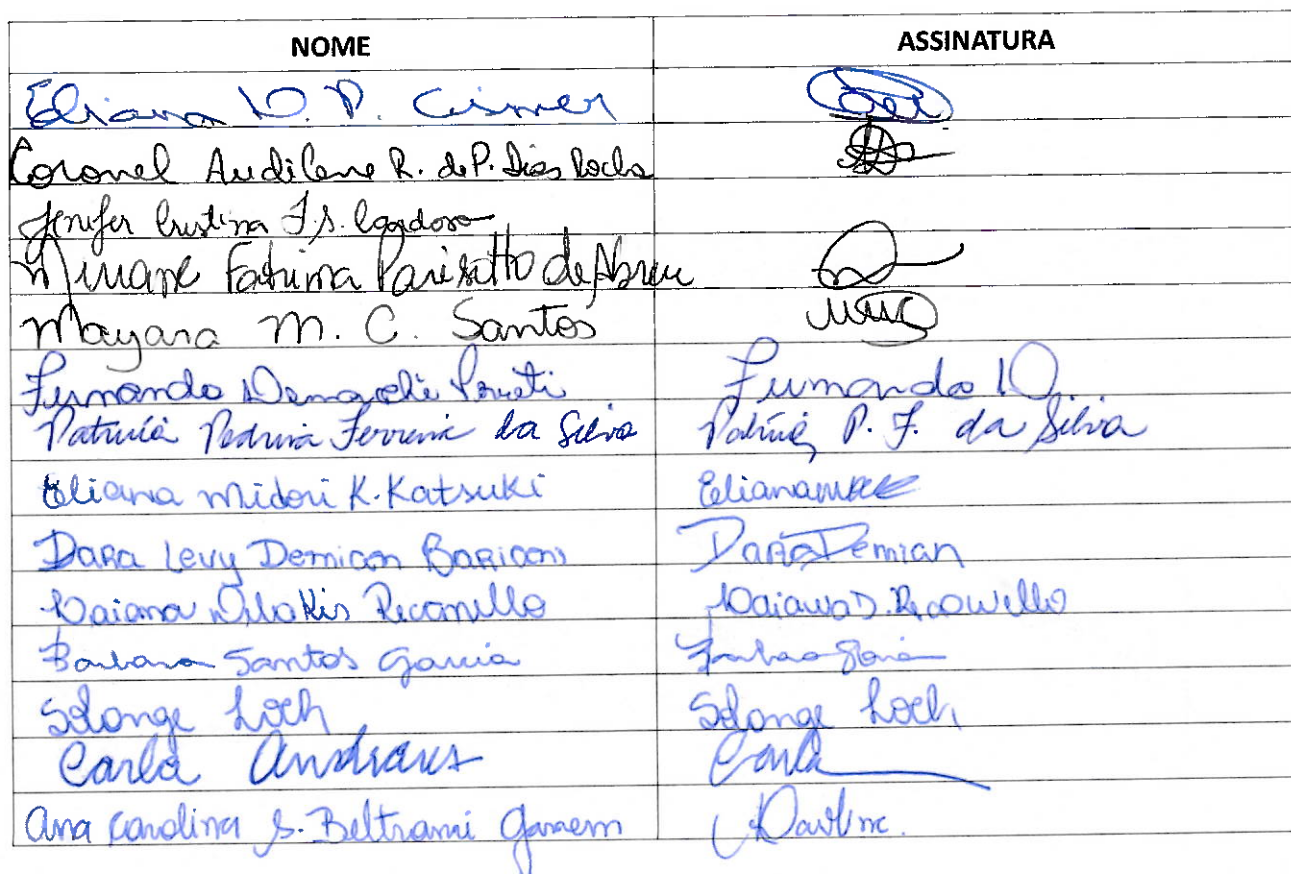 NOME ASSINATURA
Eliana D. P. Cismer
Coronel Audilene R. de P. Dias Rocha
Jenifer Cristina F.S. Cardoso
Miriane Fatima Parisotto de Abreu
Mayara M. C. Santos
Fernanda Fernanda D.
Patricia Pedrina Ferreira da Silva Patricia P. F. da Silva
Eliana Midori K. Katsuki Eliana
Dara Levy Demian Bariconi Dara Demian
Daiana Recanello Daiana D. Recanello
Barbara Santos Garcia
Solange Loch Solange Loch
Carla Andraus Carla
Ana Carolina S. Beltrami